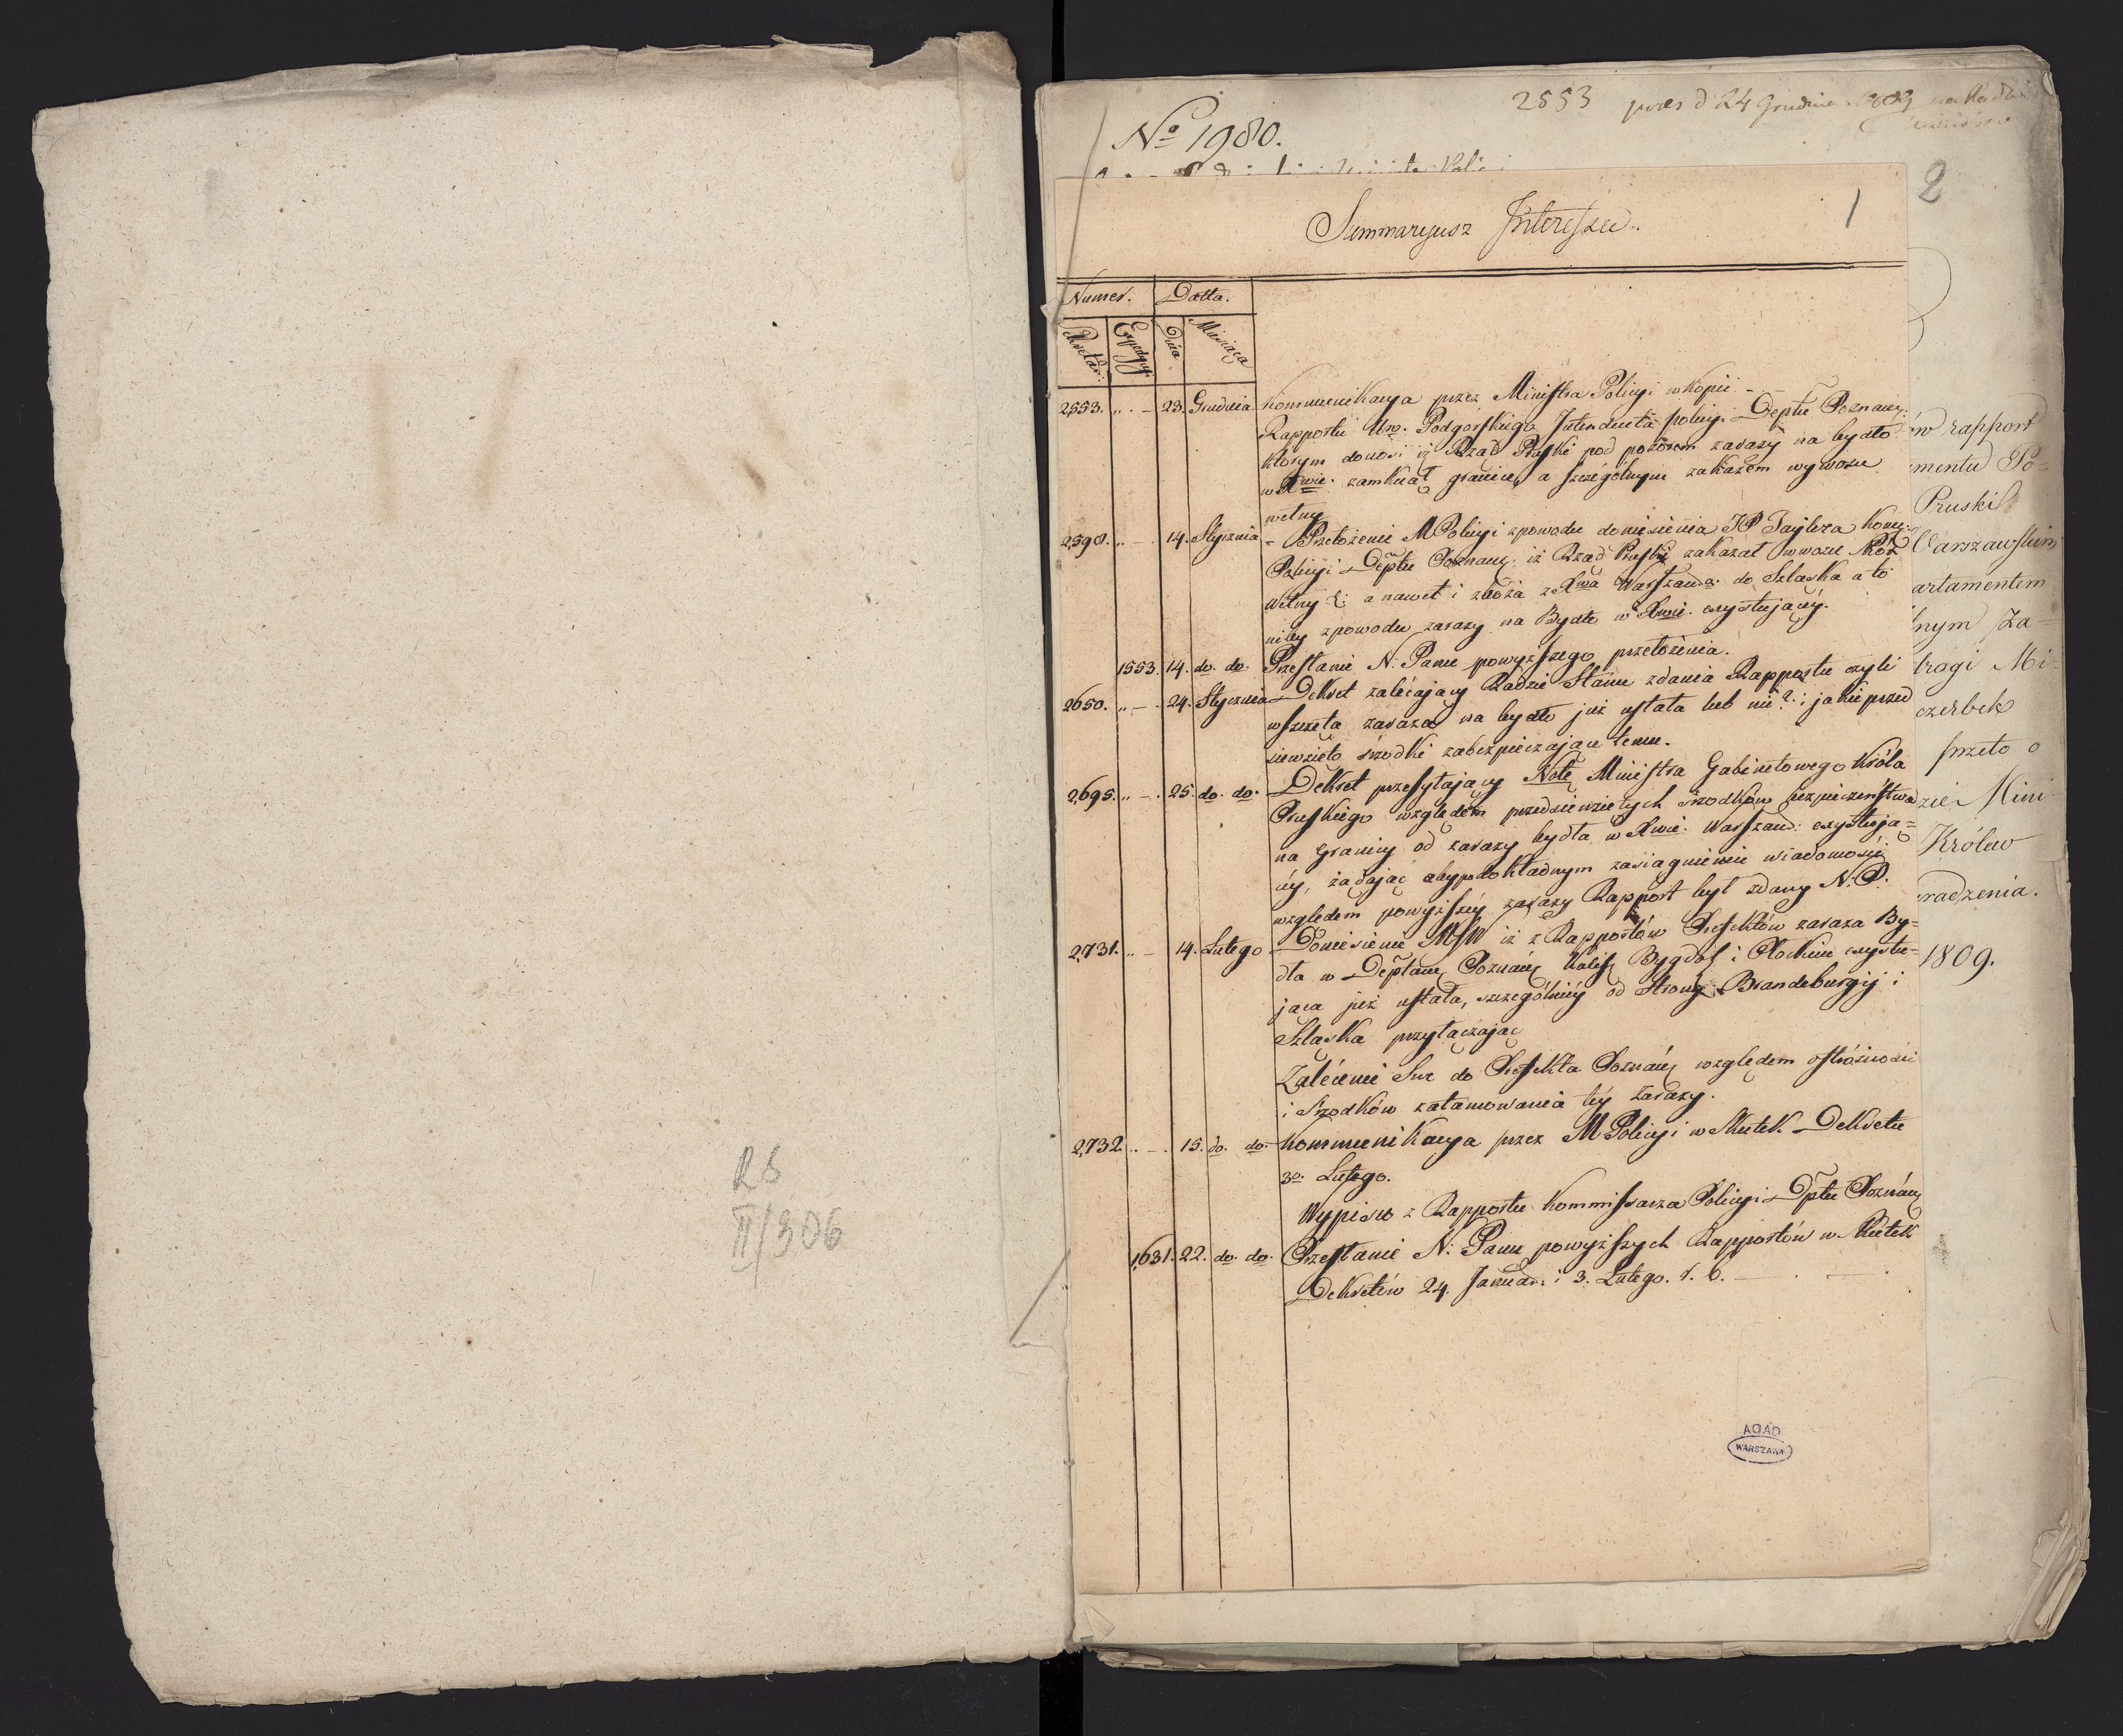 RS
II/306
2553 prés d 24 Grudnia 1809
No 1980.
2
1
Summaryusz Interessu.
Numer. Datta.
Sekretar: Expedycyi Dnia Miesiąca
2,553. 23. Grudnia Kommunikacya przez Ministra Policyi w Kopii
Rapportu Ur. Podgorskiego Intendenta policyi Deptu Poznań:
którym donosi iż Rząd Pruski pod pozorem zarazy na bydło
w Xwie. zamknął granice, a szczególnym zakazem wywozu
wełny
2,598. 14. Stycznia Przełożenie M Policyi z powodu doniesienia JP Taylera Kom:
Policyi Deptu Poznańs. iż Rząd Pruski zakazał wwozu skór
wełny & a nawet i zboża z Xwa Warszaws. do Szląska a to
niby z powodu zarazy na Bydło w Xwie. exystującéy.
1553. 14. do. do. Przesłanie N. Panu powyższego przełożenia.
2650. 24. Stycznia Dekret zalecający Radzie Stanu zdania Rapportu czyli
wszczęta zaraza na bydło już ustała lub nie? i jakie przed
siewzięto śrzodki zabezpieczające temu.
2,695. 25. do. do. Dekret przesyłający Notę Ministra Gabinetowego Króla
Pruskiego względem przedsiewziętych srzodków bezpieczeństwa
na granicy od zarazy bydła w Xwie. Warszaw: exystują=
céy, żądając aby po dokładnym zasiągnieniu wiadomości
względem powyższéy zarazy Rapport był zdany N. P.
2,731. 14. Lutego Doniesienie MSW iż z Rapportów Prefektów zaraza By=
dła w Deptame Poznańs Kalis Bydgos i Płockim exystu=
jąca już ustała, szczególniéy od strony Brandeburgij i
Szląska przyłączając
Zalécenie Swe do Prefekta Poznańs względem ostróżności
i srzodków zatamowania téy zarazy.
2,732. 15. do. do. Kommunikacya przez M Policyi w skutek Dekretu
3o. Lutego.
Wypisu z Rapportu Kommissarza Policyi Dptu Poznańs
1,631. 22. do. do. Przesłanie N. Panu powyższych Rapportów w skutek
Dekretów 24. Januar. i 3. Lutego. r. b.
rapport
mentu Po=
Pruski
Warszawskim
artamentem
nym Za=
trogi Mi=
czerbek
przeto o
zie Mini
Królew
radzenia.
1809.
AGAD
WARSZAWA